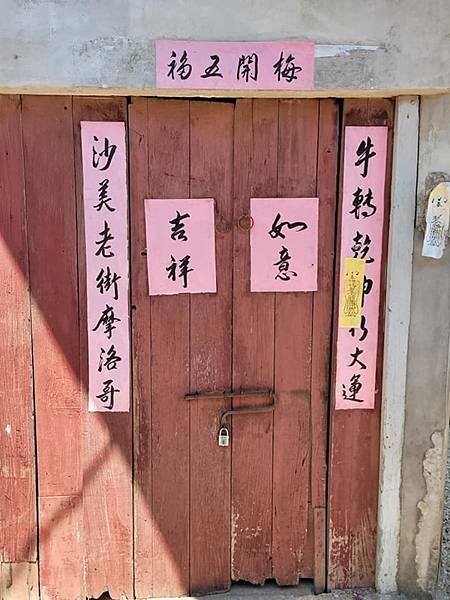 梅開五福
牛轉乾坤行大運
沙美老街摩洛哥
如意
吉祥